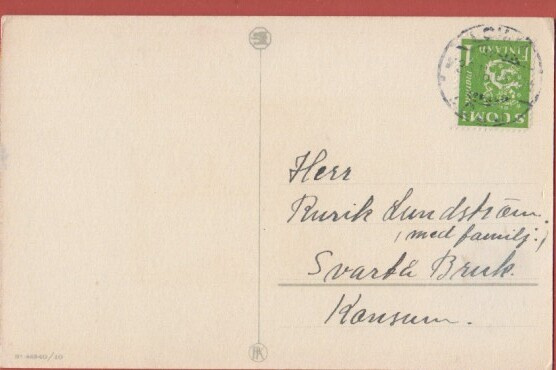 FINLAND
1
markka
SUOMI
Herr
Rurik Lundström.
(med familj.)
Svartå Bruk.
Konsum.